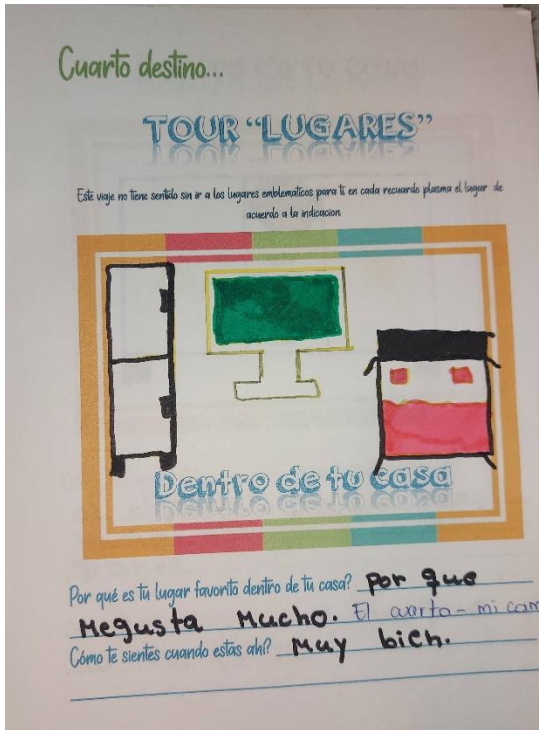 Cuarto destino...
TOUR “LUGARES”
Este viaje no tiene sentido sin ir a los lugares emblematicos para ti en cada recuardo plasma el lugar de
acuerdo a la indicacion
Dentro de tu casa
Por qué es tu lugar favorito dentro de tu casa? por que
Megusta Mucho. El cuarto - mi cam
Cómo te sientes cuando estas ahí? Muy bien.